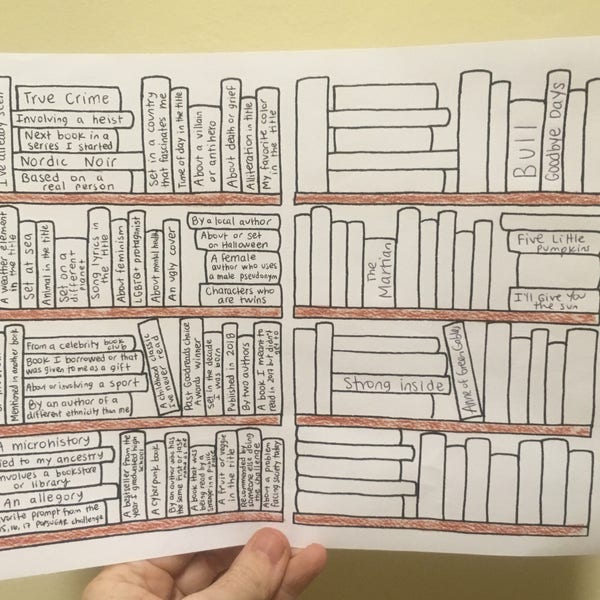 I've already seen
True Crime
Involving a heist
Next book in a
series I started
Nordic Noir
Based on a
real person
Set in a country
that fascinates me
Time of day in the title
About a villain
or antihero
About death or grief
Alliteration in title
My favorite color
in the title
Bull
Goodbye Days
A weather element
in the title
Set at sea
Animal in the title
Set on a
different
planet
Song lyrics in
the title
About feminism
LGBTQ+ protagonist
About mental health
An ugly cover
By a local author
About or set
on Halloween
A female
author who uses
a male pseudonym
Characters who
are twins
The
Martian
Five Little
Pumpkins
I'll Give You
the sun
Mentioned in another book
From a celebrity book
club
Book I borrowed or that
was given to me as a gift
About or involving a sport
By an author of a
different ethnicity than me
A childhood classic
I've never read
Past Goodreads Choice
Awards winner
Set in the decade
I was born
Published in 2018
By two authors
A book I meant to
read in 2017 but didn't
get to
Strong inside
Anne of Green Gables
A microhistory
ied to my ancestry
nvolves a bookstore
or library
An allegory
avorite prompt from the
15, 16, 17 POPSUGAR challenge
A bestseller from the
year I graduated high
school
A cyberpunk book
By an author who has
the same first or last
name as me
A book that was
being read by a
stranger in a public
place
A fruit or veggie
in the title
Recommended by
someone else doing
the challenge
About a problem
facing society today